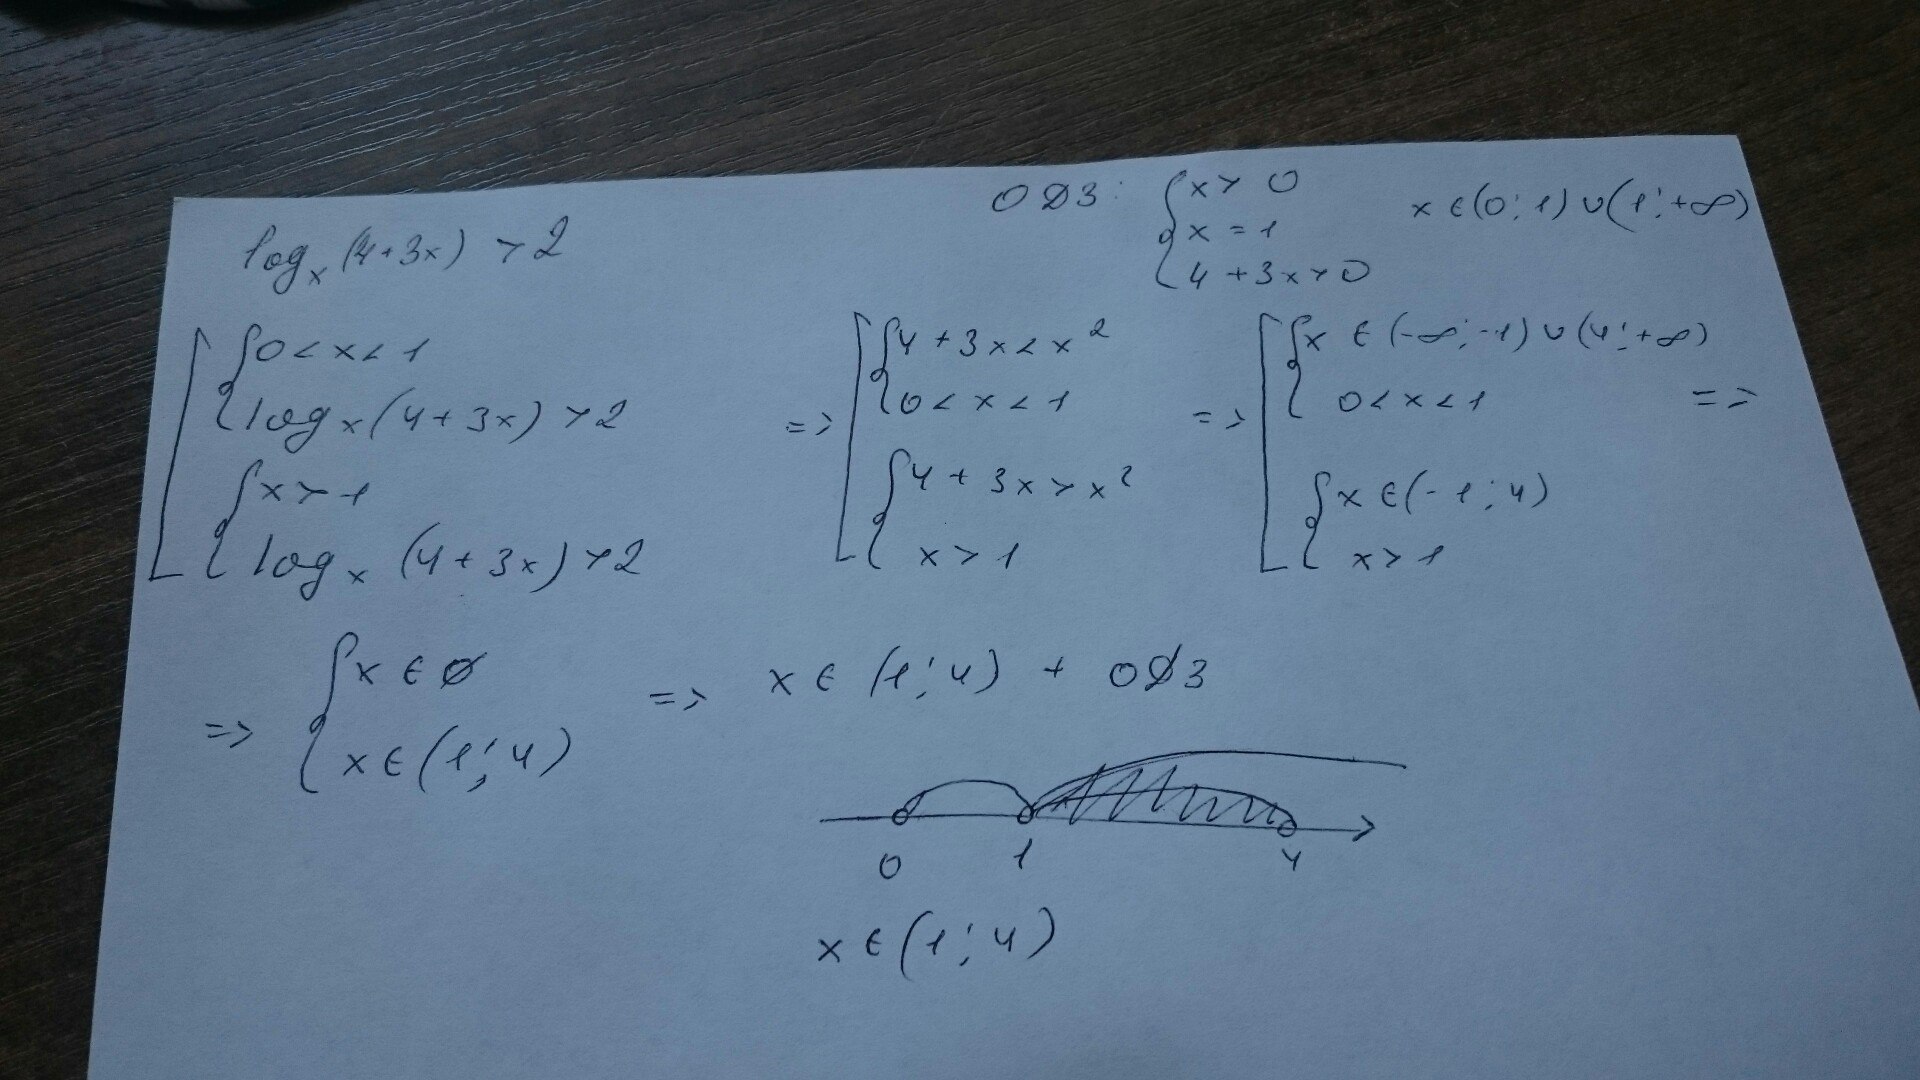 ОДЗ: { x > 0
x = 1
4 + 3x > 0
x ∈ (0; 1) ∪ (1; +∞)
log_x (4+3x) > 2
[ { 0 < x < 1
log_x (4 + 3x) > 2
{ x > 1
log_x (4 + 3x) > 2
=> [ { 4 + 3x < x²
0 < x < 1
{ 4 + 3x > x²
x > 1
=> [ { x ∈ (-∞; -1) ∪ (4; +∞)
0 < x < 1
{ x ∈ (-1; 4)
x > 1
=>
=> { x ∈ ∅
x ∈ (1; 4)
=> x ∈ (1; 4) + ОДЗ
0 1 4
x ∈ (1; 4)